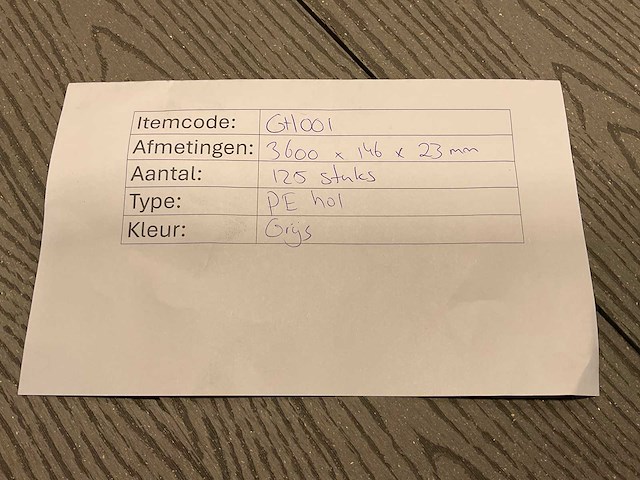 Itemcode: GH001
Afmetingen: 3600 x 146 x 23 mm
Aantal: 125 stuks
Type: PE hol
Kleur: Grijs